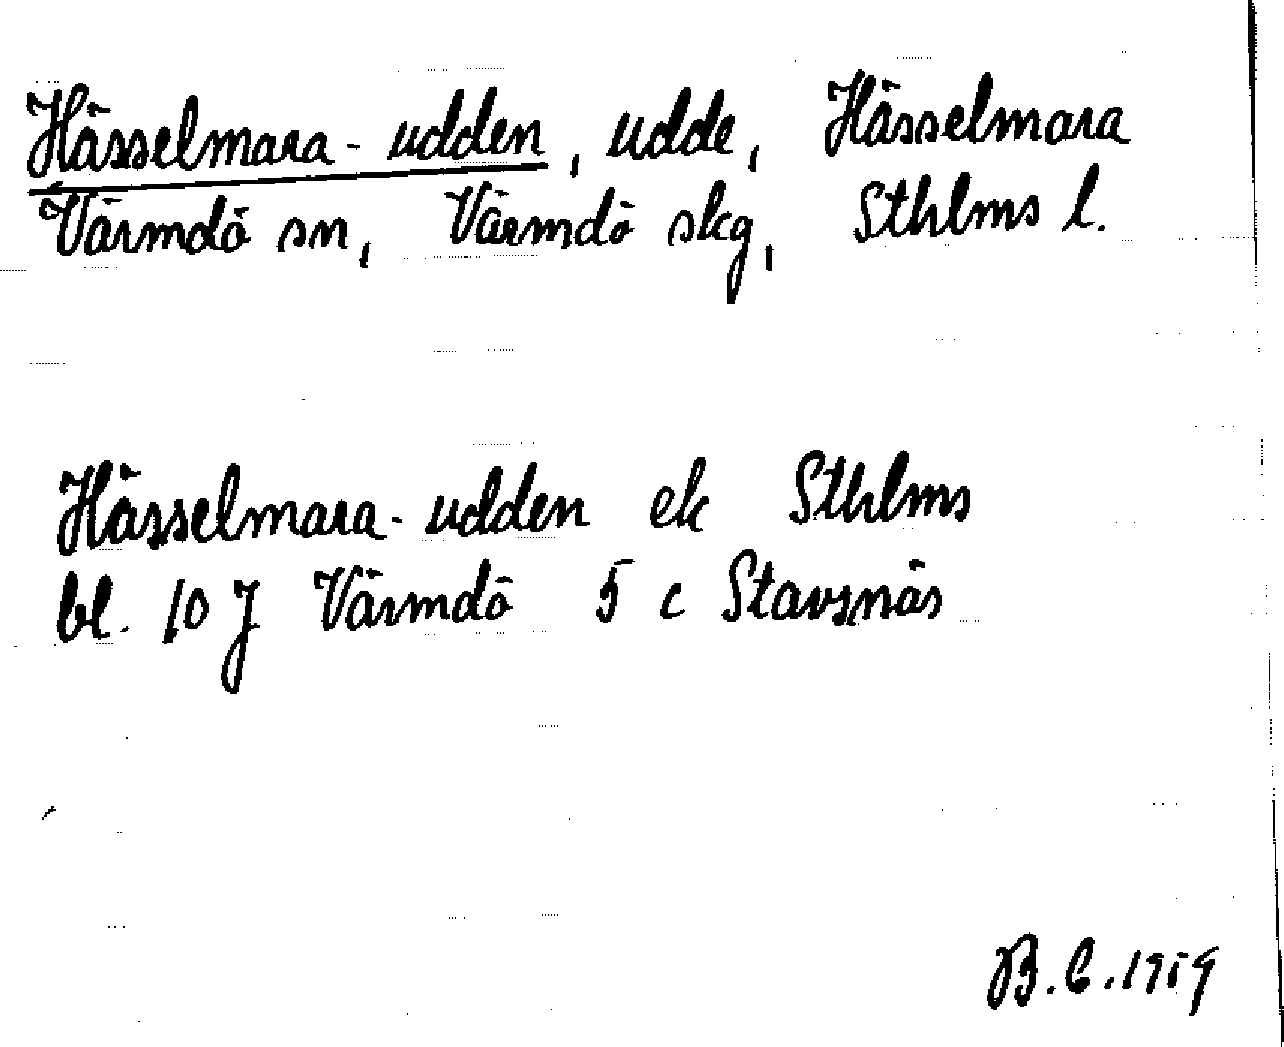 Hässelmara-udden, udde, Hässelmara
Värmdö sn, Värmdö skg, Sthlms l.
Hässelmara-udden ek Sthlms
bl. 10 J Värmdö 5 c Stavsnäs
B.C.1959